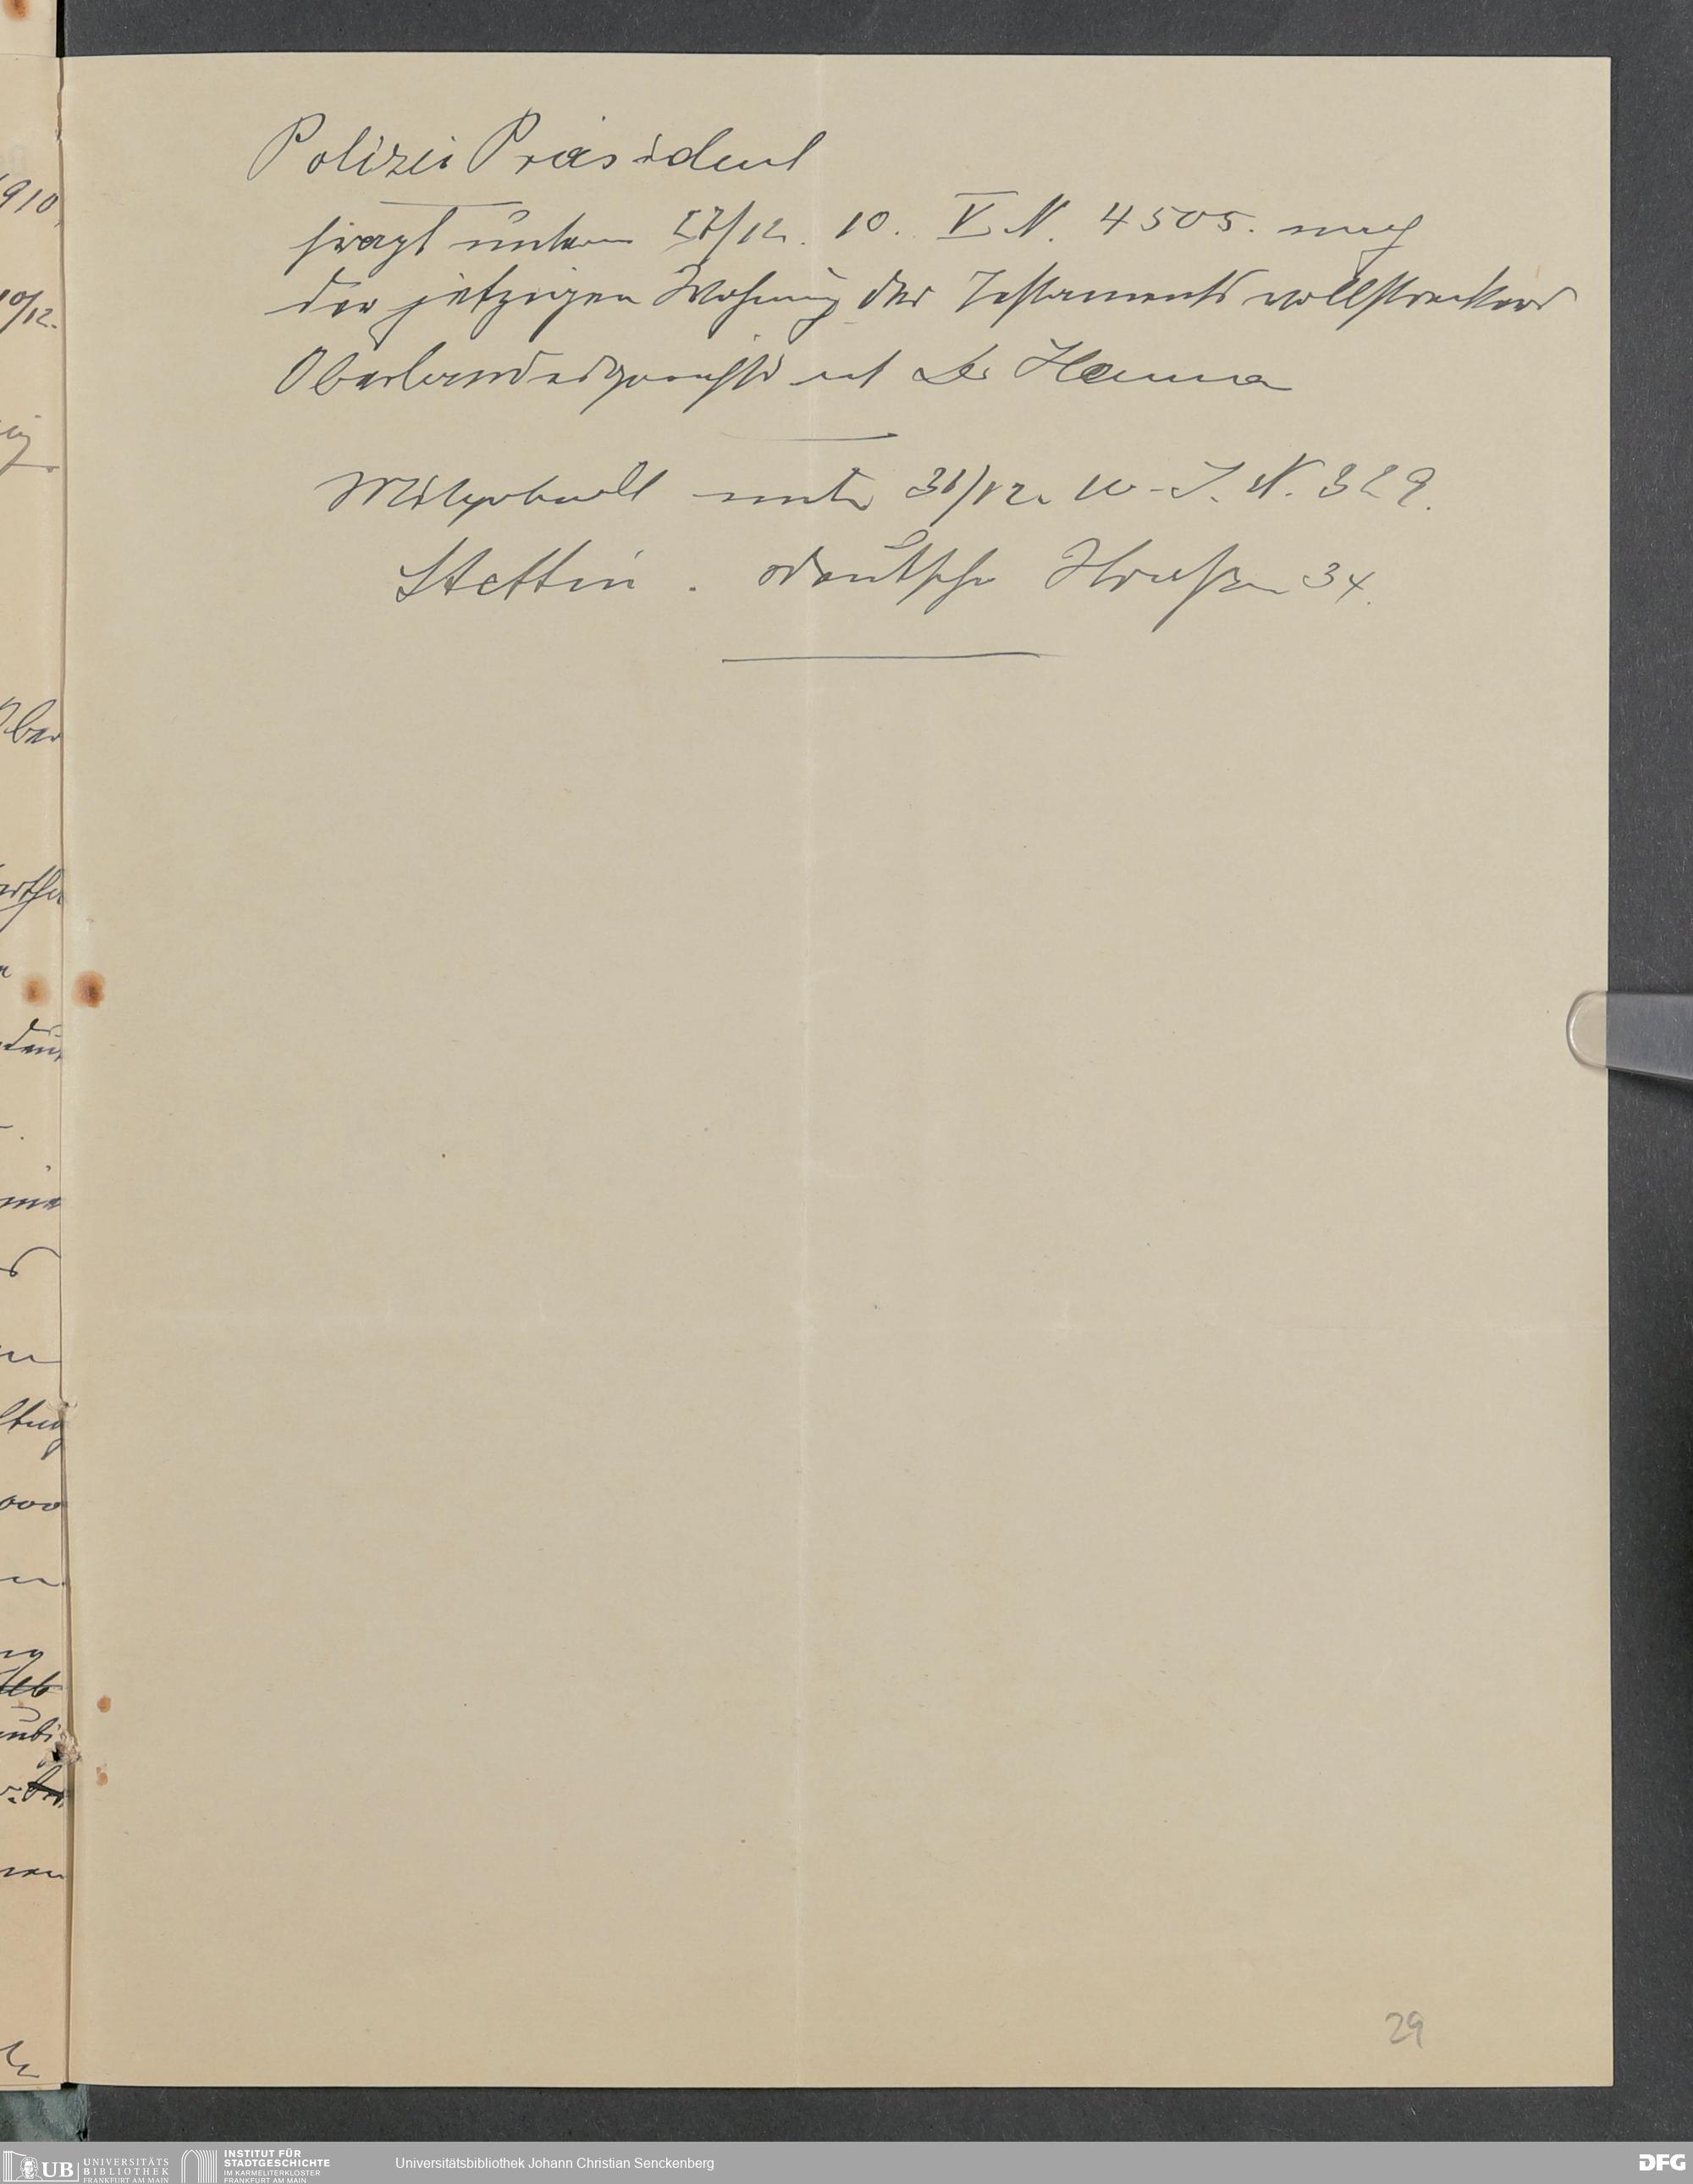 Polizei Präsident
frägt unterm 27/12. 10. V N. 4505. nach
der jetzigen Wohnung des Testamentsvollstreckers
Oberlandesgerichtsrat Dr Hanna
Mitgeteilt unter 31/12. 10 - J. N. 329.
Stettin. Deutsche Straße 34.
29
UB UNIVERSITÄTS
BIBLIOTHEK
FRANKFURT AM MAIN
INSTITUT FÜR
STADTGESCHICHTE
IM KARMELITERKLOSTER
FRANKFURT AM MAIN
Universitätsbibliothek Johann Christian Senckenberg
DFG